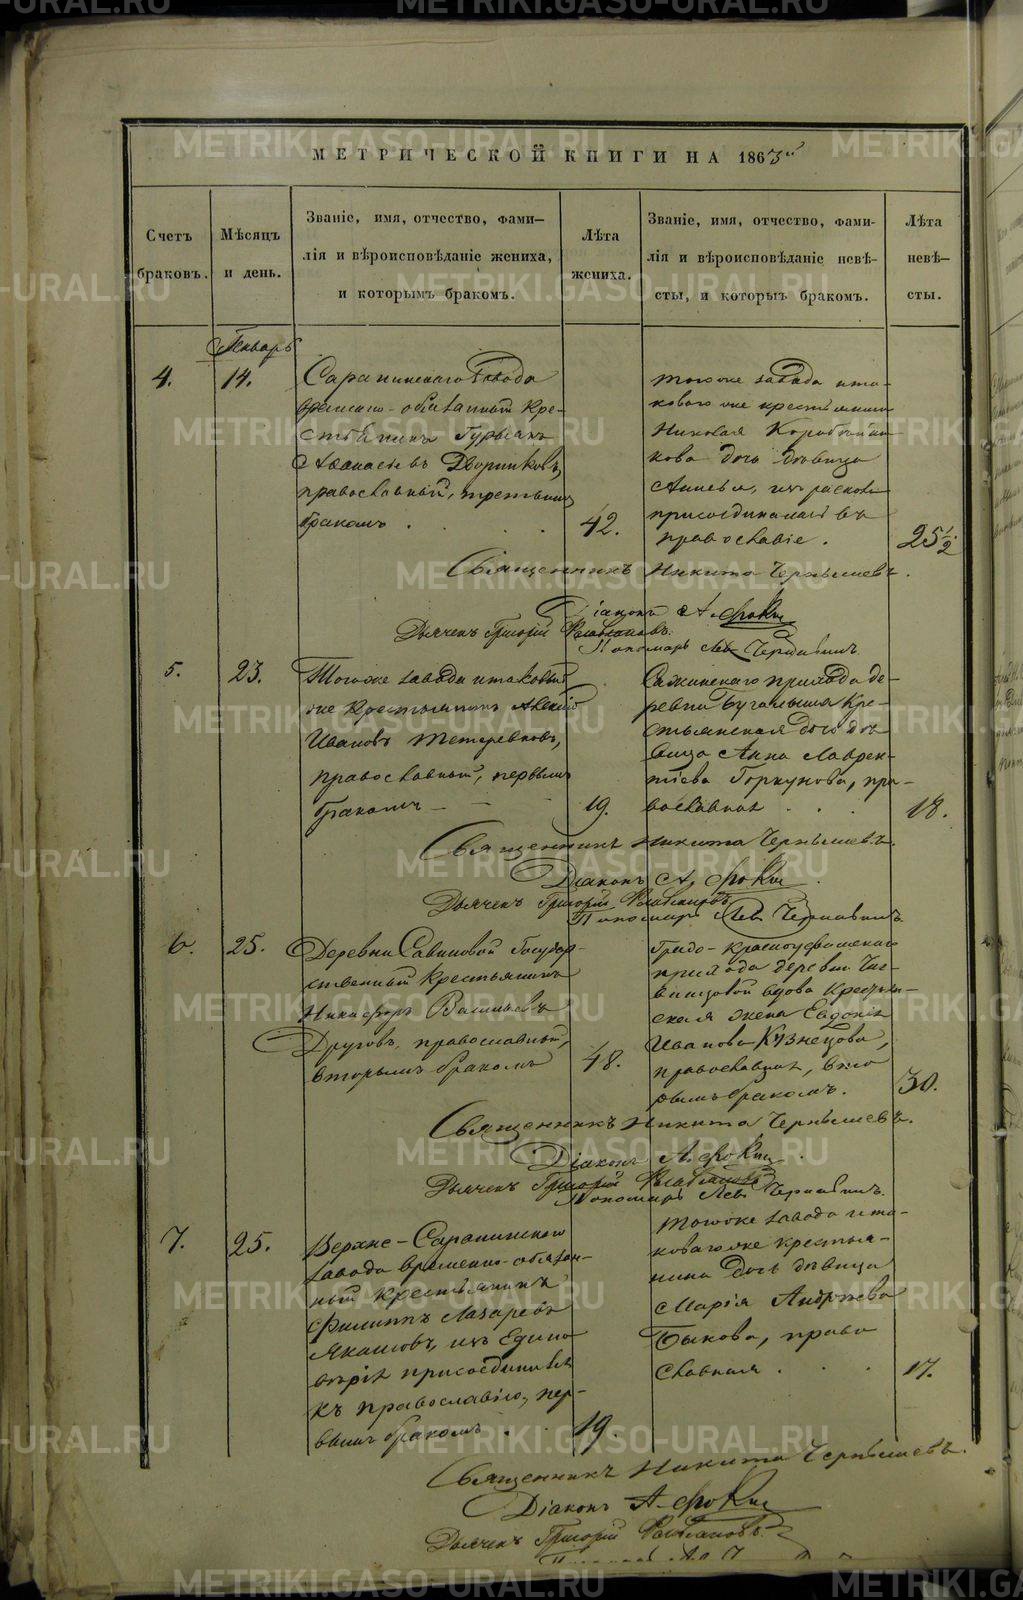 МЕТРИЧЕСКОЙ КНИГИ НА 1863й
Счетъ
браковъ.
Мѣсяцъ
и день.
Званіе, имя, отчество, фами-
лія и вѣроисповѣданіе жениха,
и которымъ бракомъ.
Лѣта
жениха.
Званіе, имя, отчество, фами-
лія и вѣроисповѣданіе невѣ-
сты, и которыя бракомъ.
Лѣта
невѣ-
сты.
Январь
4.
14.
Сарапинскаго завода
временно-обязанный кре-
стьянинъ
Аѳанасьевъ Дворниковъ,
православный, третьимъ
бракомъ.
42.
того же завода и та-
коваго же крестьянина
Николая
кова дочь дѣвица
изъ раскола
присоединилась въ
православіе.
25½
Священникъ Никита Чернышевъ.
Діаконъ А.
Дьячекъ Григорій
Пономарь Левъ
5.
23.
Того же завода и таковый
же крестьянинъ Алексѣй
Ивановъ Тетеревковъ,
православный, первымъ
бракомъ
19.
Сажинскаго прихода де-
ревни Бугалыша кре-
стьянская дочь дѣ-
вица Анна Лаврен-
тіева Горкунова, пра-
вославная
18.
Священникъ Никита Чернышевъ.
Діаконъ А.
Дьячекъ Григорій
Пономарь Левъ
6.
25.
Деревни Савиновой Государ-
ственный крестьянинъ
Никифоръ Васильевъ
Друговъ, православный,
вторымъ бракомъ
48.
Градо-Красноуфимскаго
прихода деревни
вдова крестьян-
ская жена Евдокія
Иванова Кузнецова,
православная, вто-
рымъ бракомъ.
30.
Священникъ Никита Чернышевъ.
Діаконъ А.
Дьячекъ Григорій
Пономарь Левъ
7.
25.
Верхне-Сарапинскаго
завода временно-обязан-
ный крестьянинъ
Филиппъ Лазаревъ
Якашовъ, изъ Едино-
вѣрія присоединился
къ православію, пер-
вымъ бракомъ.
19.
того же завода и та-
коваго же крестья-
нина дочь дѣвица
Марія Андреева
Быкова, право-
славная.
17.
Священникъ Никита Чернышевъ.
Діаконъ А.
Дьячекъ Григорій
METRIKI.GASO-URAL.RU